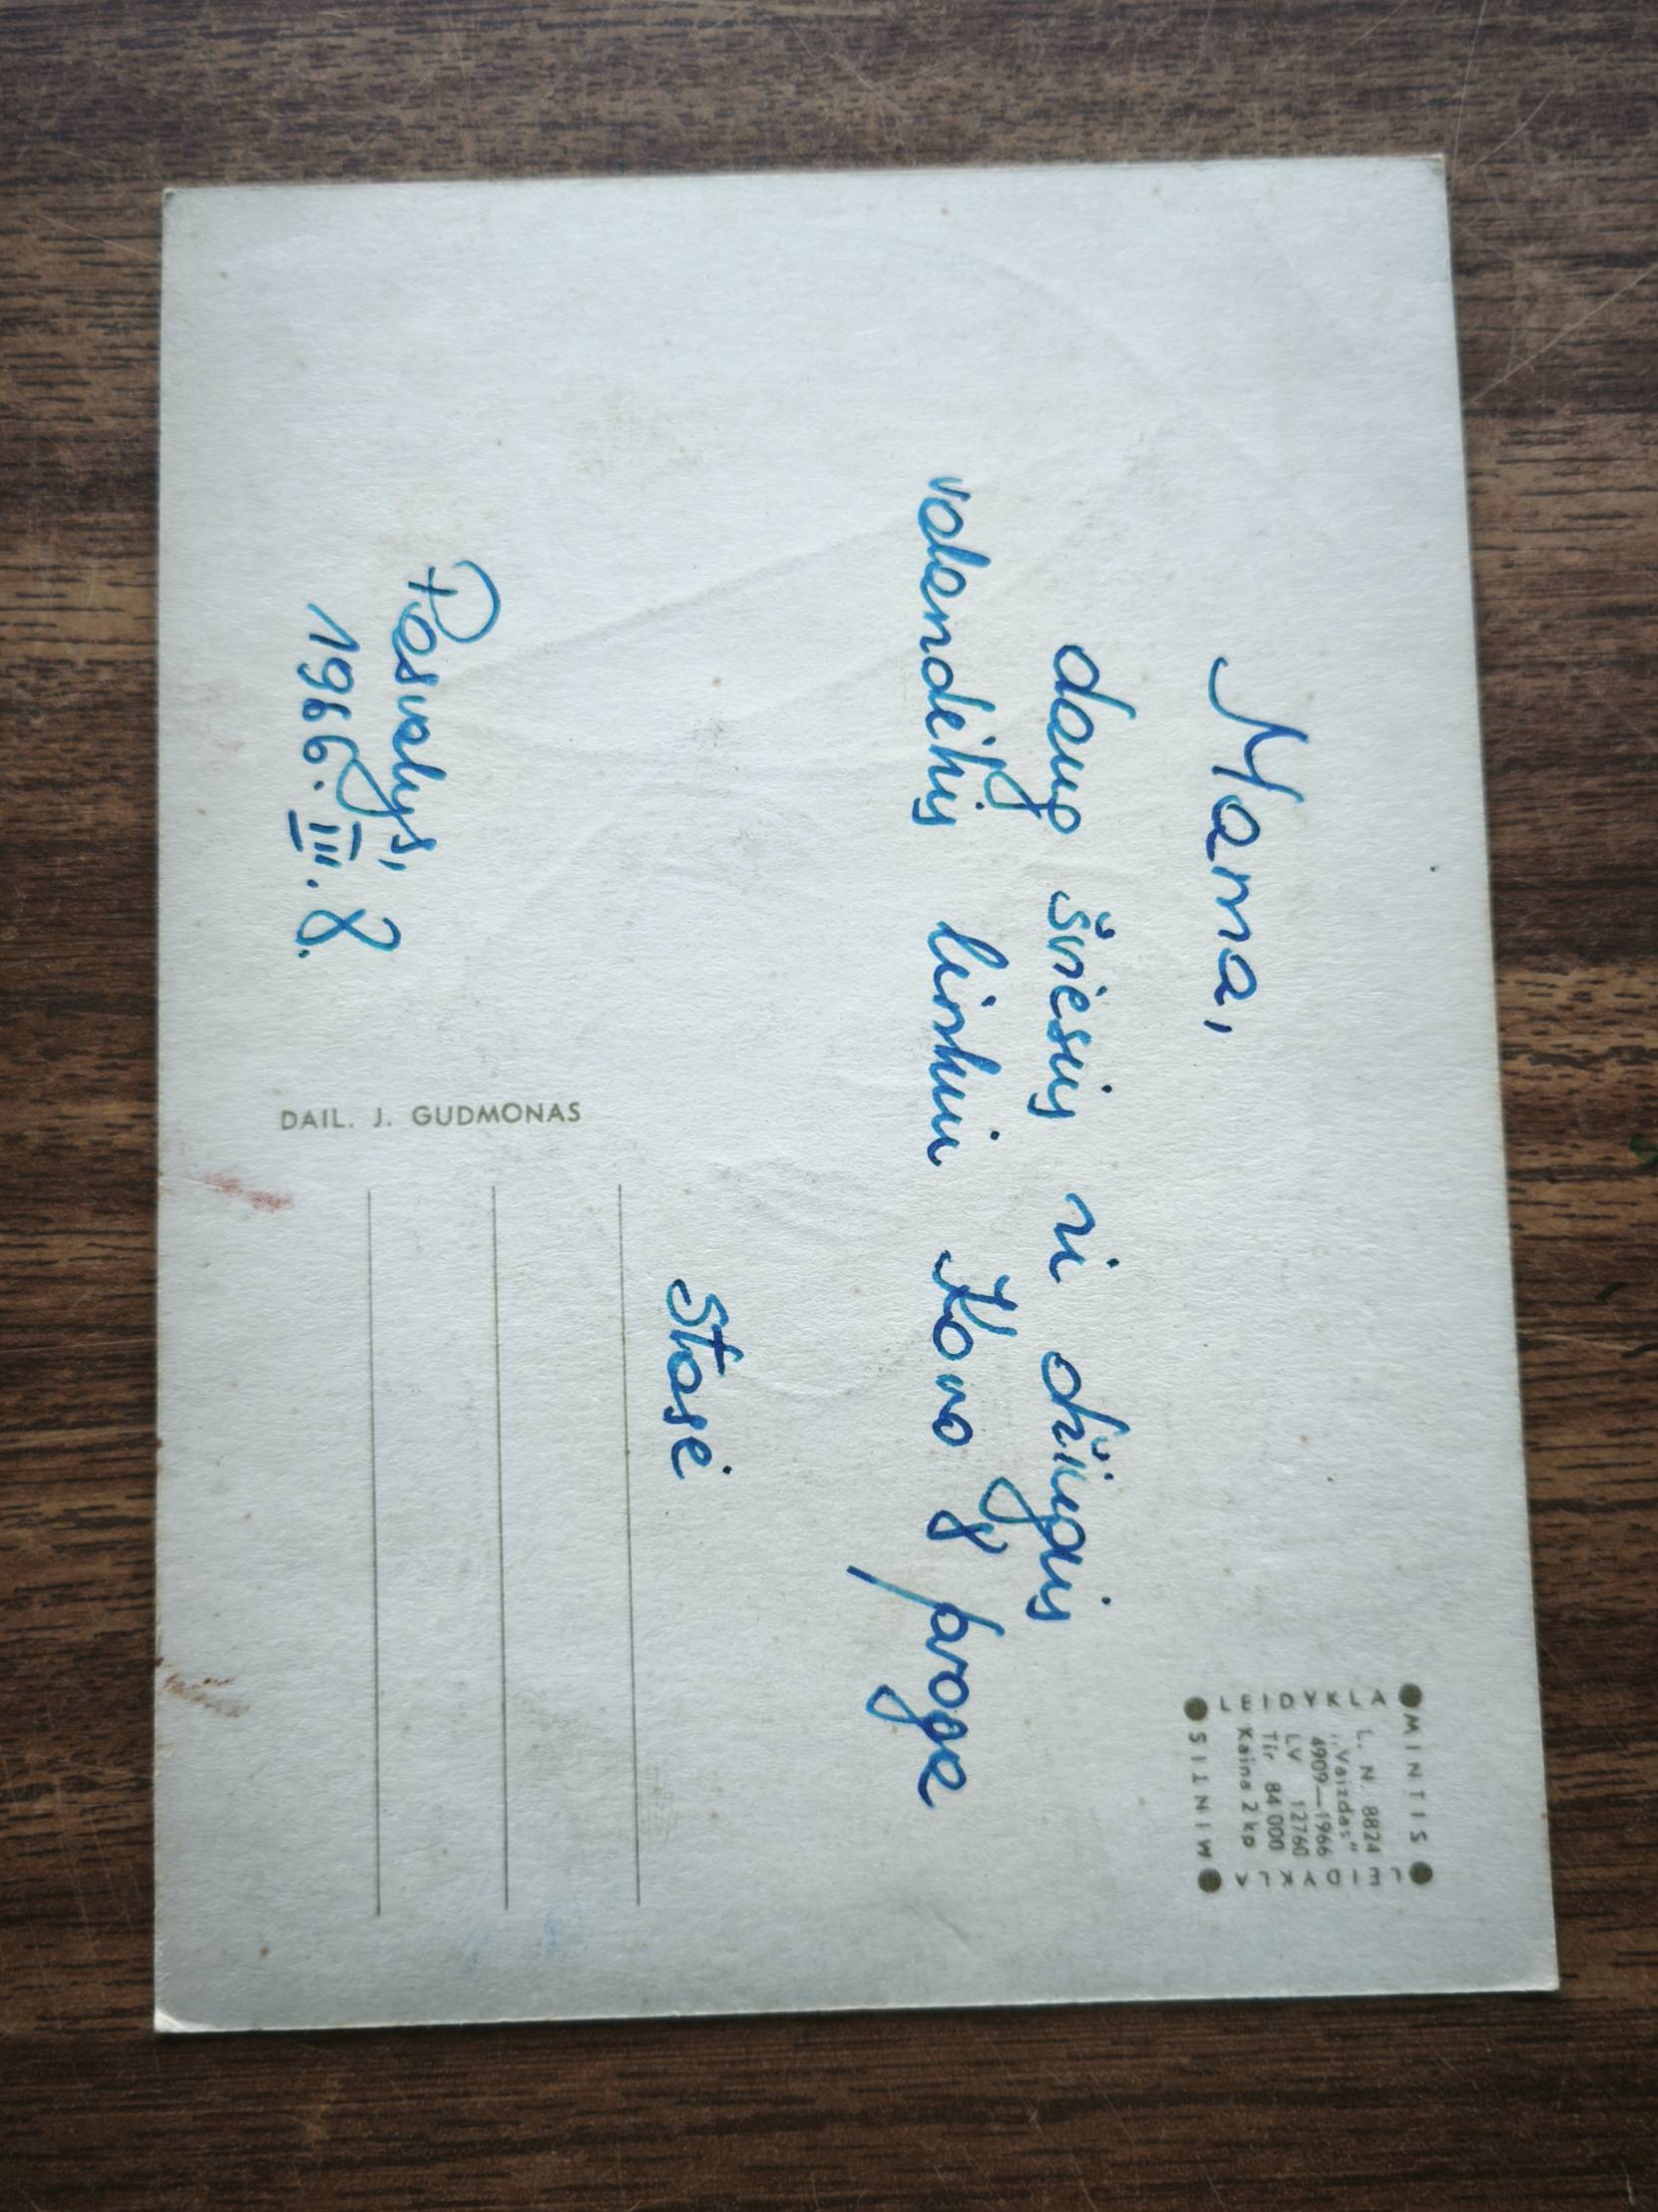 Mama,
daug šviesių ir džiugių
valandėlių linkiu Kovo 8 proga
Stasė
Pasvalys,
1966.III.8.
DAIL. J. GUDMONAS
MINTIS
LEIDYKLA
MINTIS
LEIDYKLA
L. N. 8824
„Vaizdas"
4909—1966
LV 12760
Tir 84 000
Kaina 2 kp